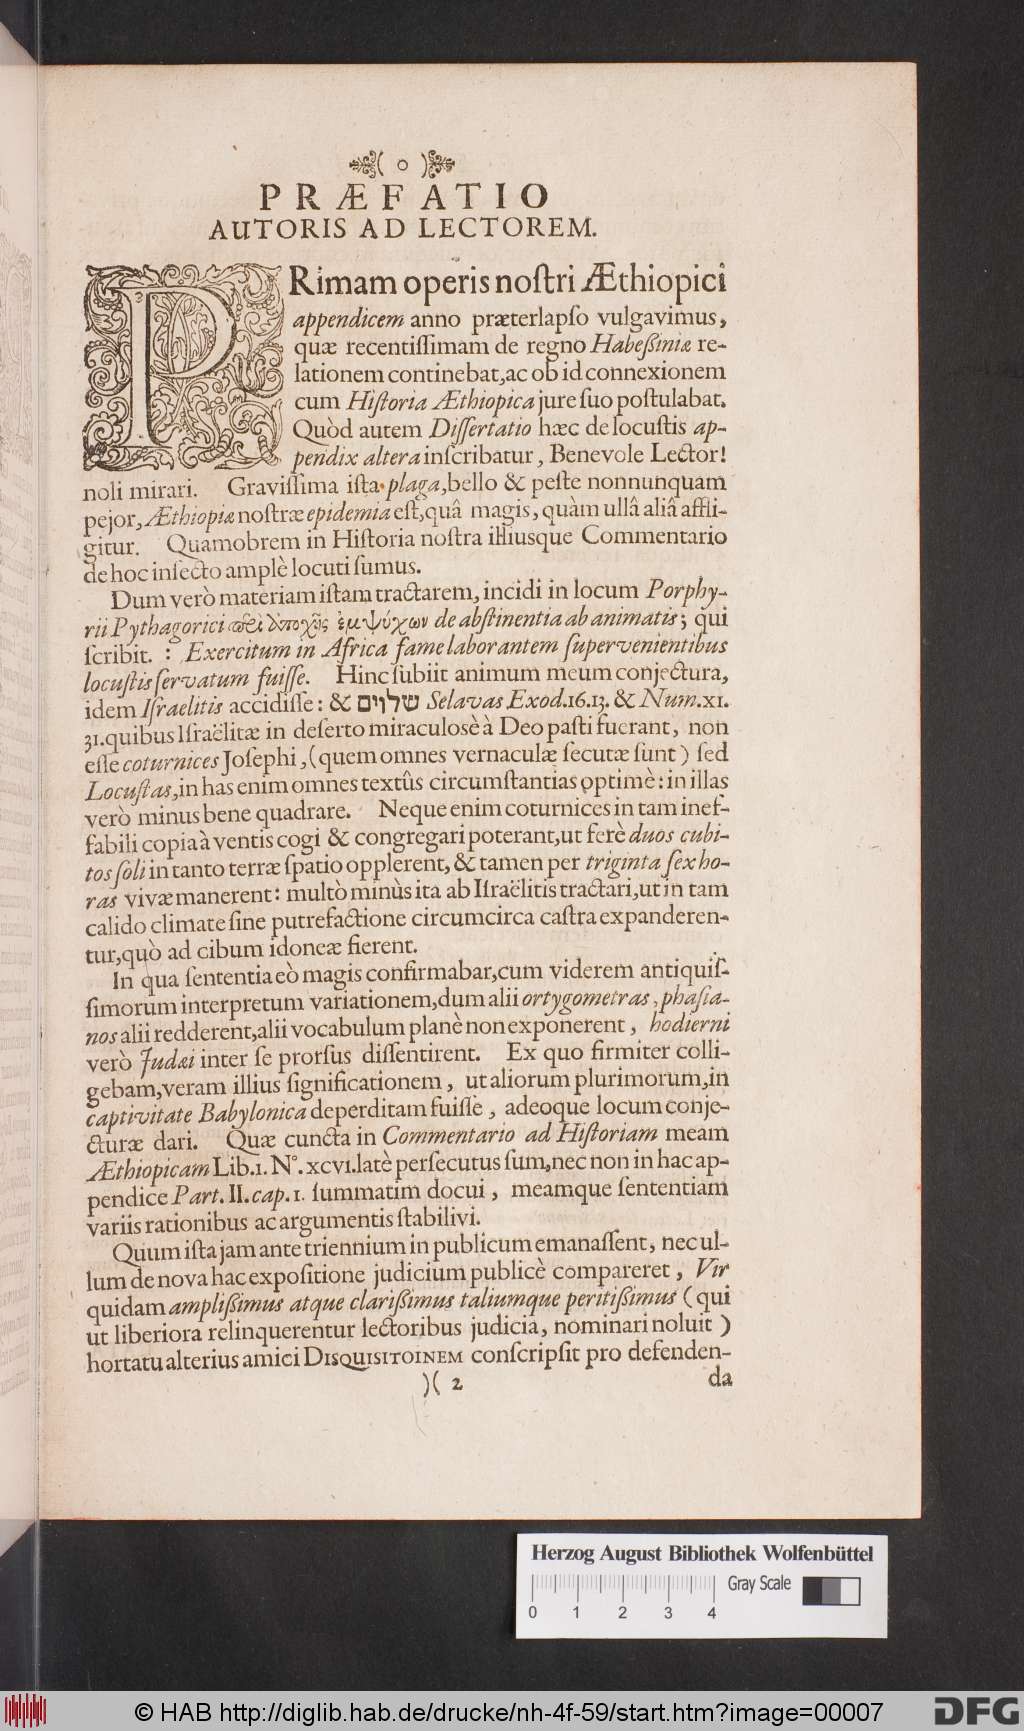 PRÆFATIO
AUTORIS AD LECTOREM.
PRimam operis noſtri Æthiopici
appendicem anno præterlapſo vulgavimus,
quæ recentiſſimam de regno Habeßiniæ re-
lationem continebat, ac ob id connexionem
cum Hiſtoria Æthiopica jure ſuo poſtulabat.
Quòd autem Diſſertatio hæc de locuſtis ap-
pendix altera inſcribatur, Benevole Lector!
noli mirari. Graviſſima iſta plaga, bello & peſte nonnunquam
pejor, Æthiopiæ noſtræ epidemia eſt, quâ magis, quàm ullâ aliâ affli-
gitur. Quamobrem in Hiſtoria noſtra illiusque Commentario
de hoc inſecto amplè locuti ſumus.
Dum verò materiam iſtam tractarem, incidi in locum Porphy-
rii Pythagorici περὶ ἀποχῆς ἐμψύχων de abſtinentia ab animatis; qui
ſcribit. : Exercitum in Africa fame laborantem ſupervenientibus
locuſtis ſervatum fuiſſe. Hinc ſubiit animum meum conjectura,
idem Iſraelitis accidiſſe: & שלוים Selavas Exod. 16. 13. & Num. XI.
31. quibus Iſraëlitæ in deſerto miraculosè à Deo paſti fuerant, non
eſſe coturnices Joſephi, (quem omnes vernaculæ ſecutæ ſunt) ſed
Locuſtas, in has enim omnes textûs circumſtantias optimè: in illas
verò minus bene quadrare. Neque enim coturnices in tam inef-
fabili copia à ventis cogi & congregari poterant, ut ferè duos cubi-
tos ſoli in tanto terræ ſpatio opplerent, & tamen per triginta ſex ho-
ras vivæ manerent: multò minùs ita ab Iſraëlitis tractari, ut in tam
calido climate ſine putrefactione circumcirca caſtra expanderen-
tur, quò ad cibum idoneæ fierent.
In qua ſententia eò magis confirmabar, cum viderem antiquiſ-
ſimorum interpretum variationem, dum alii ortygometras, phaſia-
nos alii redderent, alii vocabulum planè non exponerent, hodierni
verò Judæi inter ſe prorſus diſſentirent. Ex quo firmiter colli-
gebam, veram illius ſignificationem, ut aliorum plurimorum, in
captivitate Babylonica deperditam fuiſſe, adeoque locum conje-
cturæ dari. Quæ cuncta in Commentario ad Hiſtoriam meam
Æthiopicam Lib. 1. N°. XCVI. latè perſecutus ſum, nec non in hac ap-
pendice Part. II. cap. 1. ſummatim docui, meamque ſententiam
variis rationibus ac argumentis ſtabilivi.
Quum iſta jam ante triennium in publicum emanaſſent, nec ul-
lum de nova hac expoſitione judicium publicè compareret, Vir
quidam amplißimus atque clarißimus taliumque peritißimus (qui
ut liberiora relinquerentur lectoribus judicia, nominari noluit)
hortatu alterius amici DISQUISITOINEM conſcripſit pro defenden-
)( 2 da
Herzog August Bibliothek Wolfenbüttel
Gray Scale
0 1 2 3 4
© HAB http://diglib.hab.de/drucke/nh-4f-59/start.htm?image=00007
DFG